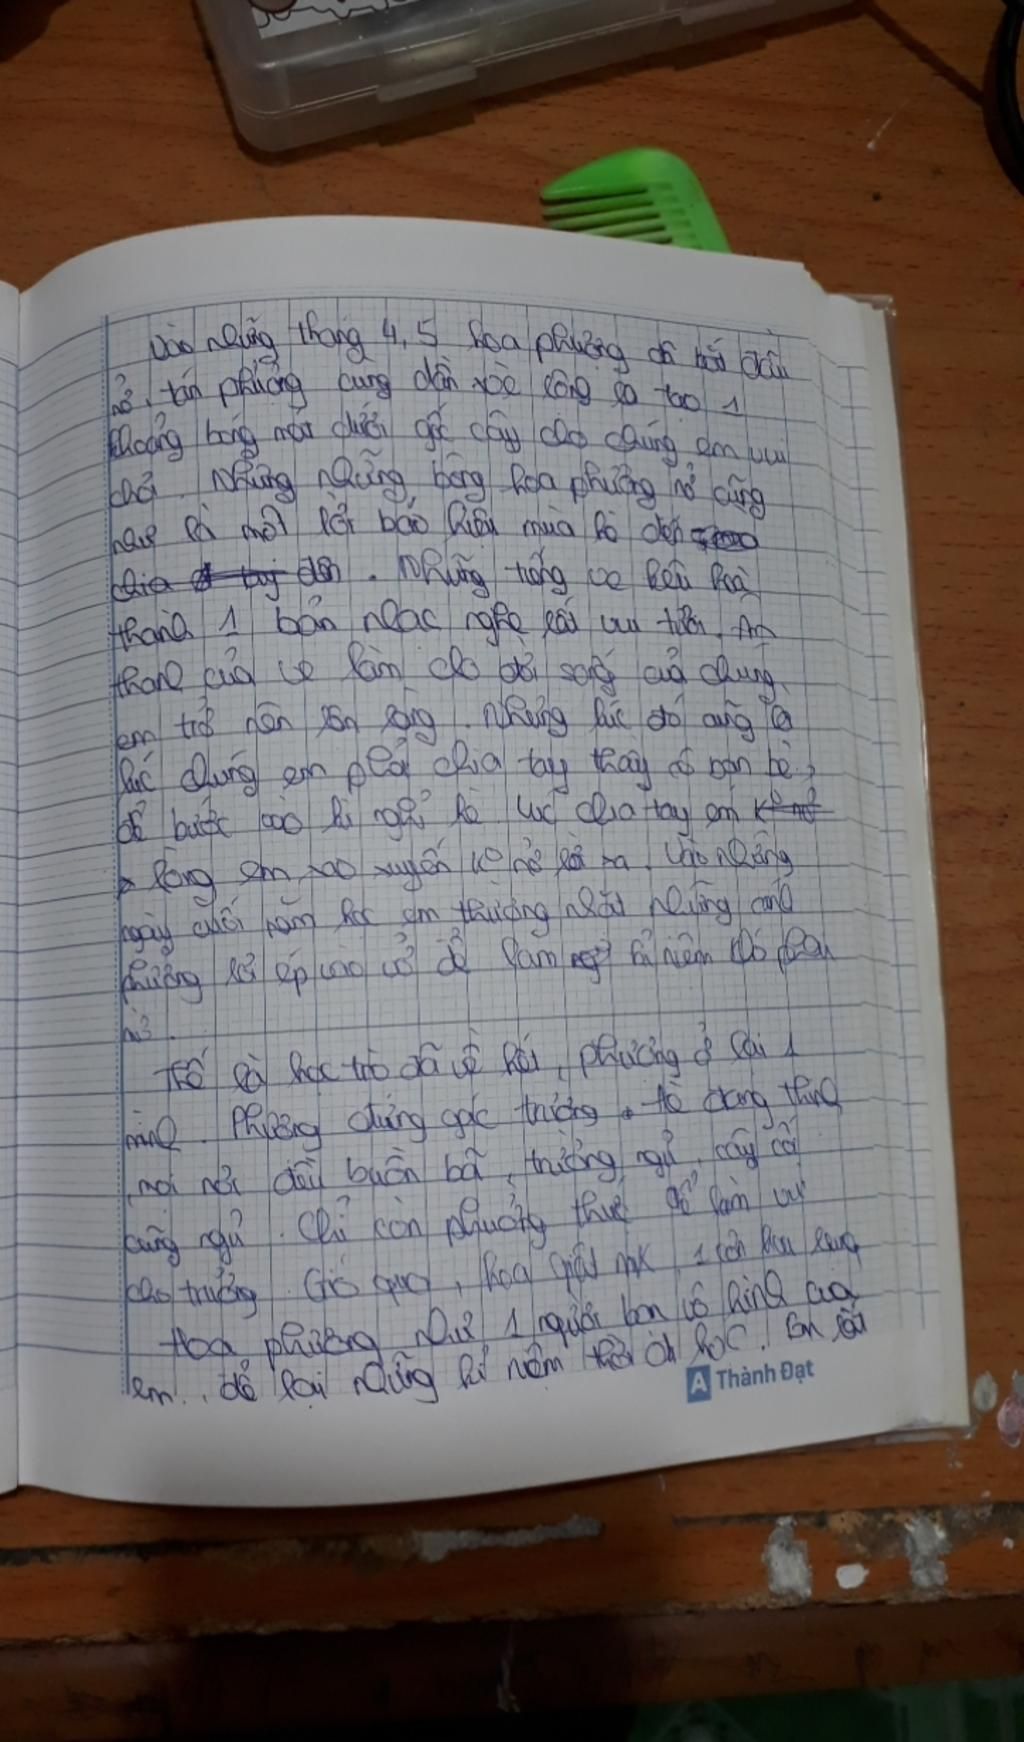 Vào những tháng 4, 5 hoa phượng đã bắt đầu
nở, tán phượng cũng dần xòe rộng ra tạo 1
khoảng bóng mát dưới gốc cây cho chúng em vui
chơi. Nhưng những bông hoa phượng nở cũng
như là một lời báo hiệu mùa hè đến
chia tay đến. Những tiếng ve kêu hoà
thành 1 bản nhạc nghe rất vui tươi. Âm
thanh của ve làm cho đời sống của chúng
em trở nên rộn ràng. Nhưng lúc đó cũng là
lúc chúng em phải chia tay thầy cô bạn bè,
để bước vào kì nghỉ hè lúc chia tay em
lòng em xao xuyến ko nỡ rời xa. Vào những
ngày cuối năm học em thường nhặt những cánh
phượng rơi ép vào vở để làm kỉ niệm
nở.
Thế là học trò đã về hết, phượng ở lại 1
mình. Phượng đứng gác trường. hè đang thịnh
mọi nơi đều buồn bã, trường ngủ, cây cối
cũng ngủ. Chỉ còn phượng thức để làm vui
cho trường. Gió qua, hoa giật mk, 1
Hoa phượng như 1 người bạn vô hình của
em, để lại những kỉ niệm thời đi học. Em rất
A Thành Đạt